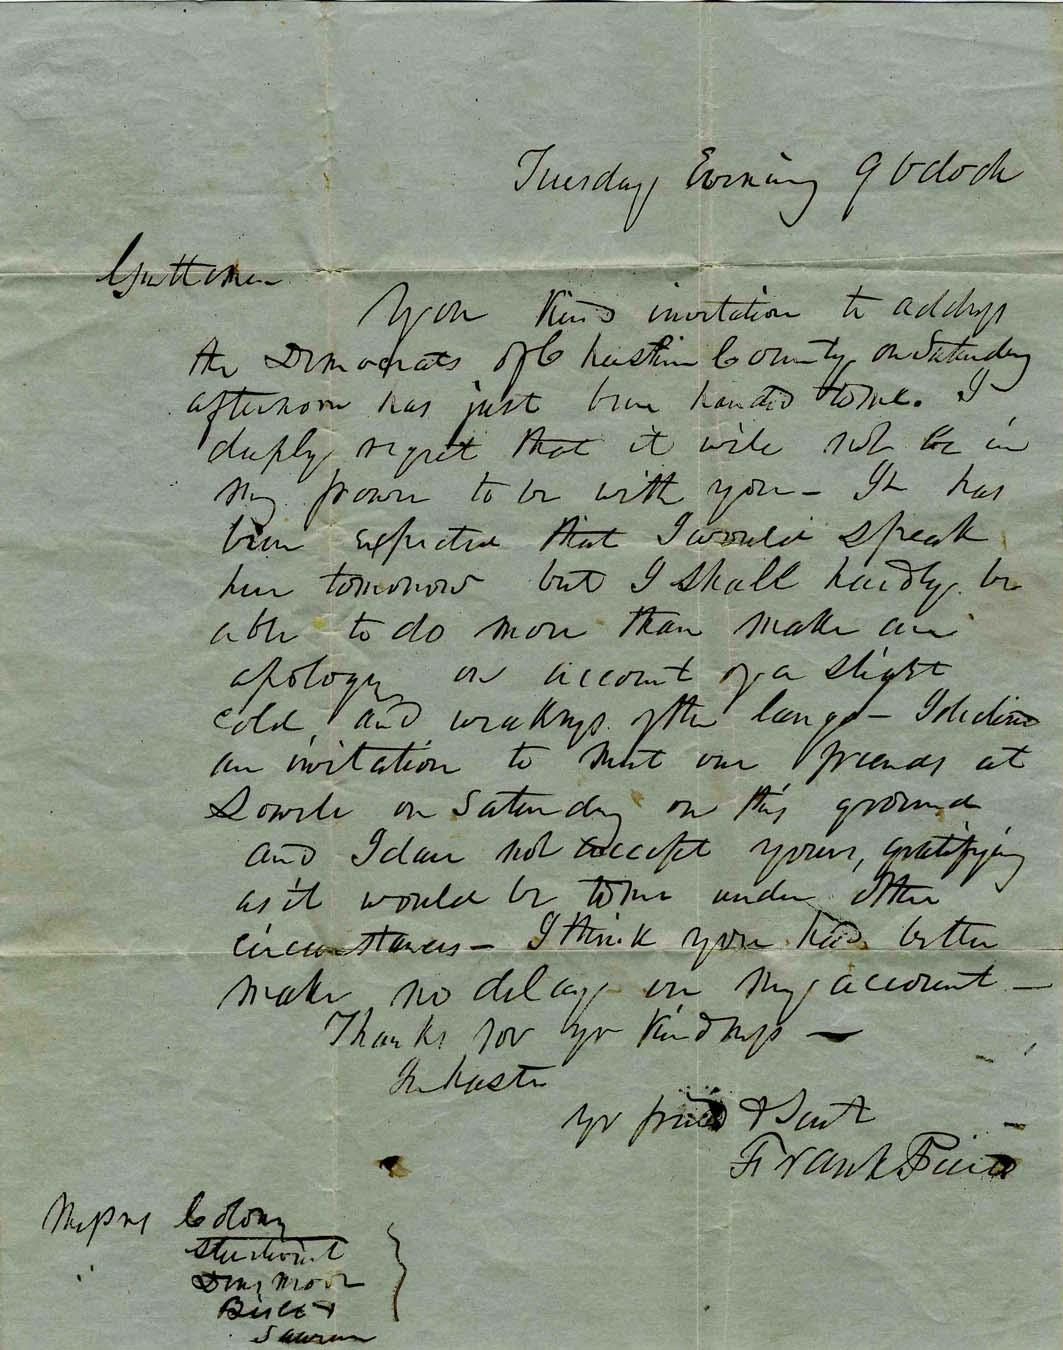 Tuesday Evening 9 Oclock
Gentlemen
Your kind invitation to address
the Democrats of Cheshire County on Saturday
afternoon has just been handed to me. I
deeply regret that it will not be in
my power to be with you — It has
been expected that I would speak
here tomorrow but I shall hardly be
able to do more than make an
apology on account of a slight
cold and weakness of the lungs — I declined
an invitation to meet our friends at
Lowell on Saturday on this ground
and I dare not accept yours, gratifying
as it would be to me under other
circumstances — I think you had better
make no delay on my account —
Thanks for yr kindness —
In haste
yr friend & Servt
Frank Pierce
Messrs Colony
Dinsmoor